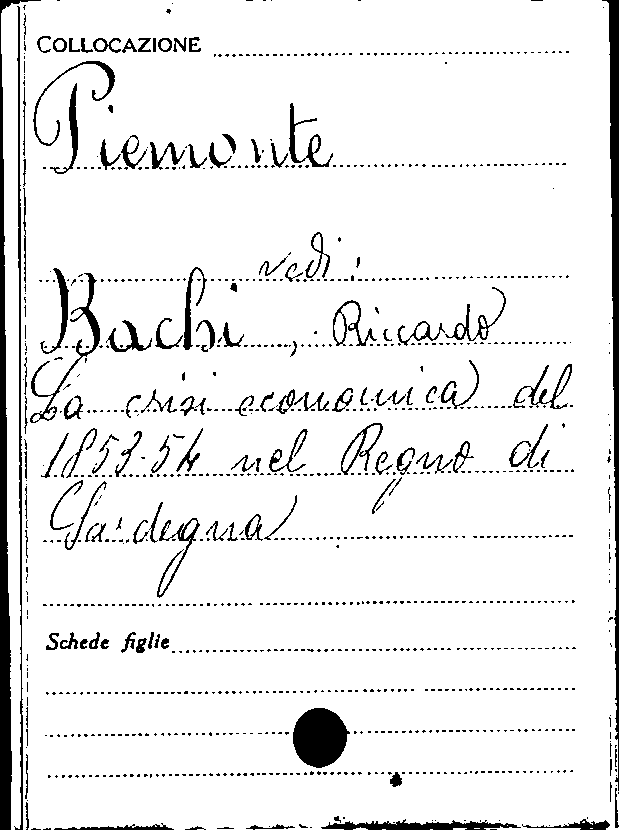 COLLOCAZIONE
Piemonte
vedi:
Bachi, Riccardo
La crisi economica del
1853-54 nel Regno di
Sardegna
Schede figlie